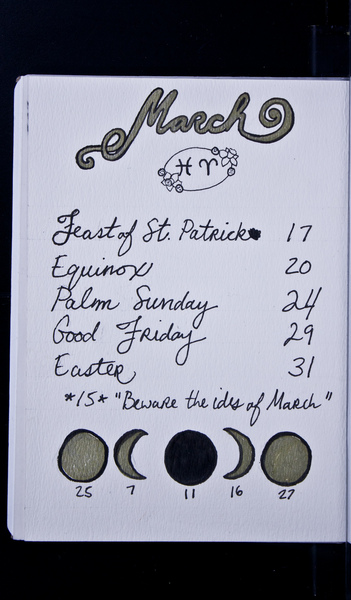 March
♓ ♈
Feast of St. Patrick 17
Equinox 20
Palm Sunday 24
Good Friday 29
Easter 31
*15* "Beware the ides of March"
25 7 11 16 27